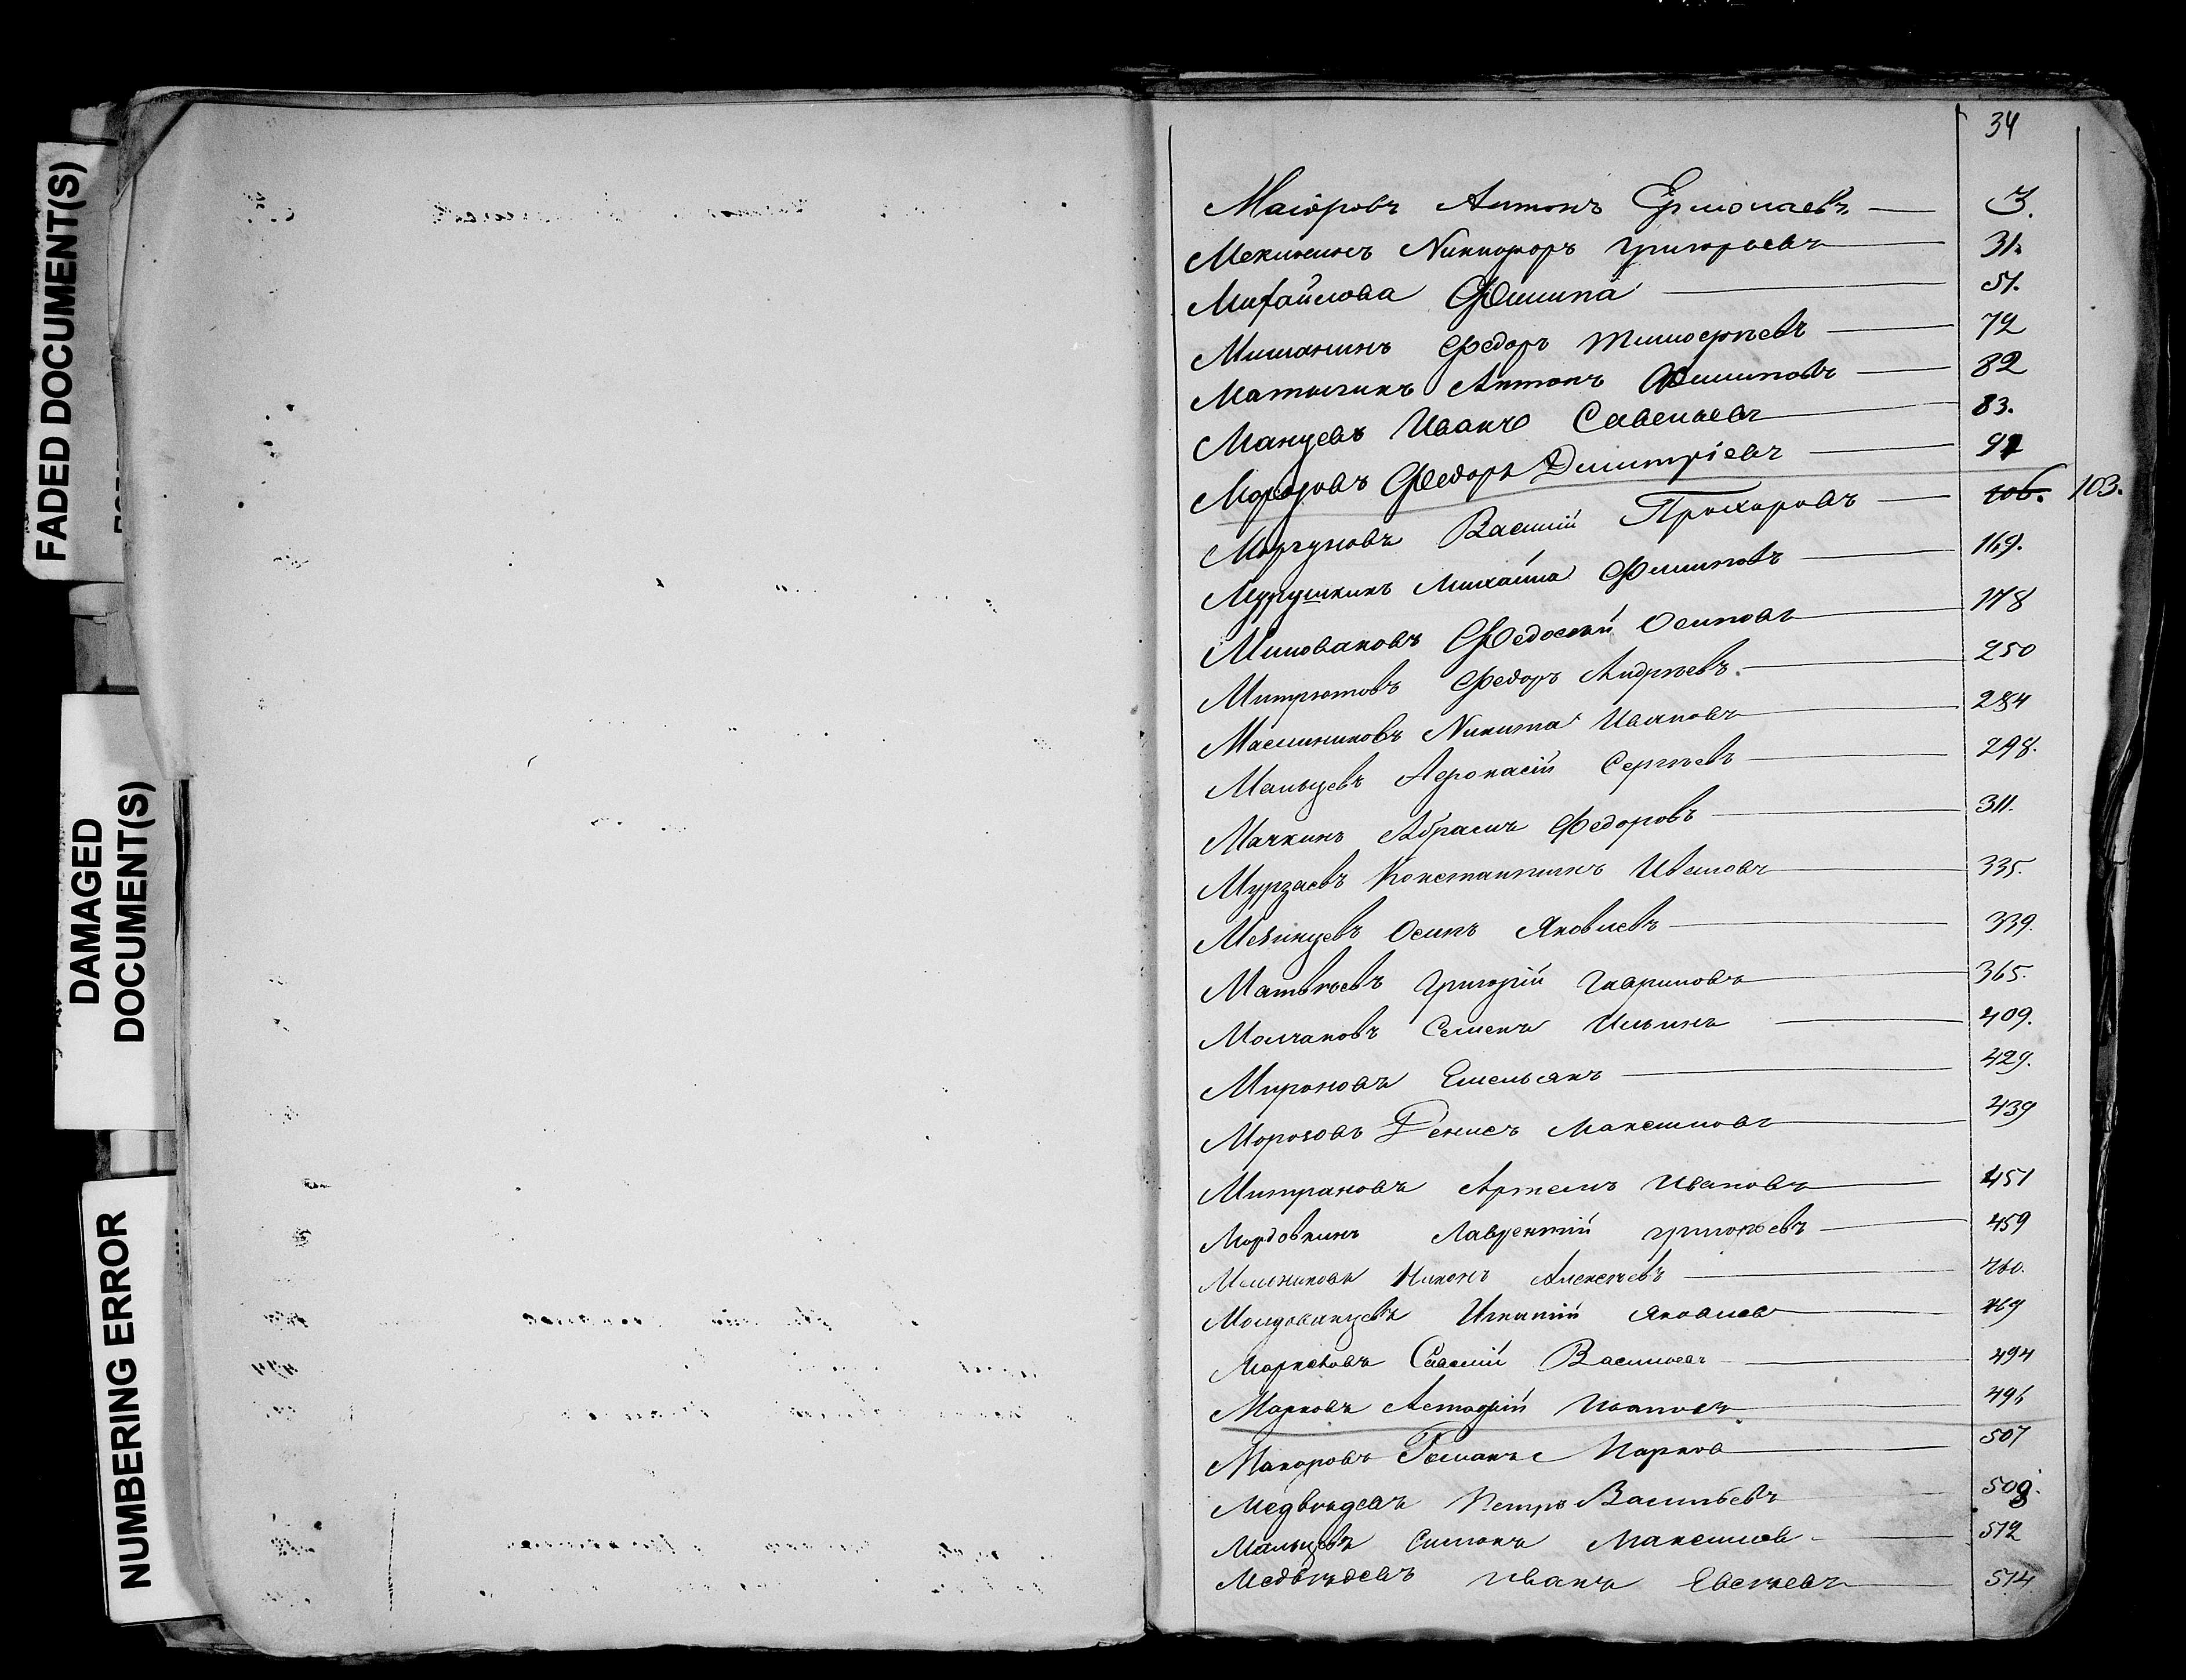 FADED DOCUMENT(S)
DAMAGED
DOCUMENT(S)
NUMBERING ERROR
34
Маіоровъ Антонъ Ермолаевъ 3.
Мекининъ Никифоръ Григорьевъ 31.
Михайлова Филипа 51.
Мишанинъ Федоръ Тимофѣевъ 72
Матыгинъ Антонъ Филиповъ 82
Манцевъ Иванъ Савельевъ 83.
Морозовъ Федоръ Димитріевъ 91
Моргуновъ Василій Прохоровъ 106. 103.
Мурушкинъ Михайла Филиповъ 169.
Миловановъ Федосѣй Осиповъ 178
Митрютовъ Федоръ Андрѣевъ. 250
Маслиниковъ Никита Ивановъ 284
Мальцевъ Афонасій Сергѣевъ 298.
Мачкинъ Абрамъ Федоровъ 311.
Мурзаевъ Константинъ Ивановъ 335.
Мезинцевъ Осипъ Яковлевъ 339.
Матвѣевъ Григорій Гавриловъ 365.
Молчановъ Семенъ Ильинъ 409.
Мироновъ Емельянъ 429.
Морозовъ Денисъ Максимовъ 439
Митрановъ Артемъ Ивановъ 451
Мордовкинъ Лаврентій Григорьевъ 459
Никонъ Алексѣевъ 460.
Молдованцевъ Игнатій Яковлев 469
Васильевъ 494
Марковъ Ивановъ 496
Макаровъ Романъ Марков 507
Медвѣдевъ Петръ Васильевъ 508.
Мальцевъ Симонъ Максимов 512
Медвѣдевъ Иванъ Евсѣевъ 514